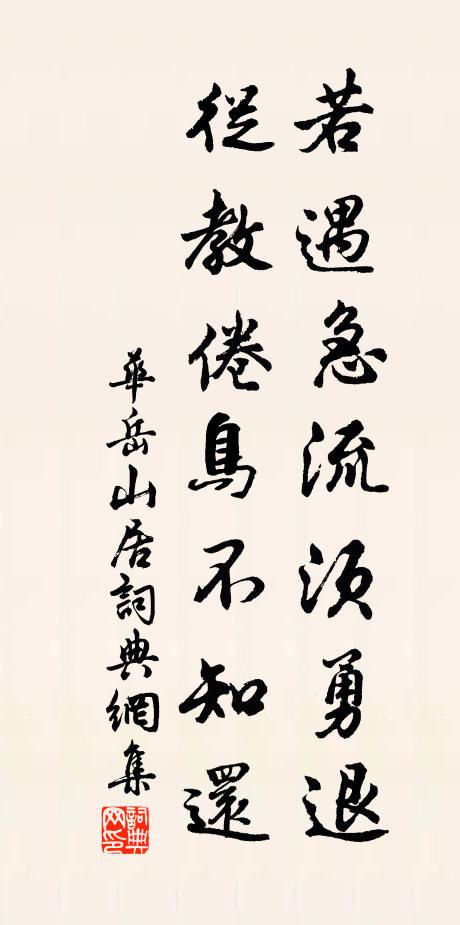 若遇急流須勇退
從教倦鳥不知還
華岳山居詞典網集
詞典網印